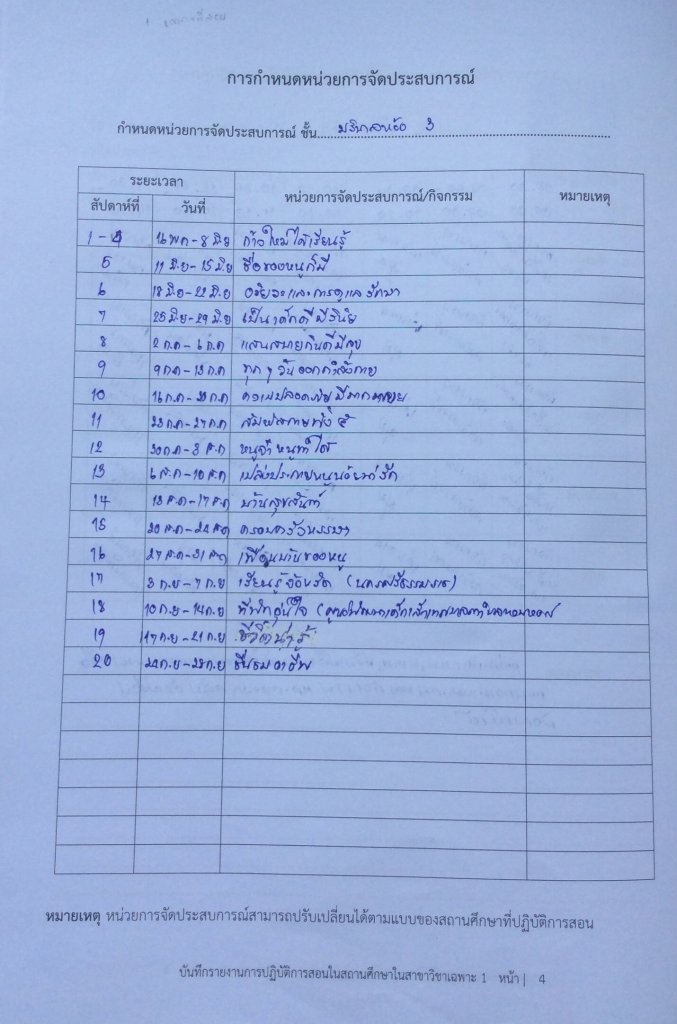 การกำหนดหน่วยการจัดประสบการณ์
กำหนดหน่วยการจัดประสบการณ์ ชั้น บริบาลห้อง 3
ระยะเวลา หน่วยการจัดประสบการณ์/กิจกรรม หมายเหตุ
สัปดาห์ที่ วันที่
1 - 4 16 พ.ค - 8 มิ.ย ก้าวใหม่ได้เรียนรู้
5 11 มิ.ย - 15 มิ.ย ชื่อของหนูก็มี
6 18 มิ.ย - 22 มิ.ย อวัยวะและการดูแลรักษา
7 25 มิ.ย - 29 มิ.ย เป็นเด็กดีมีวินัย
8 2 ก.ค - 6 ก.ค แสนสบายกินดีมีสุข
9 9 ก.ค - 13 ก.ค ทุกๆวันออกกำลังกาย
10 16 ก.ค - 20 ก.ค ความปลอดภัยมีมากมาย
11 23 ก.ค - 27 ก.ค สัมผัสกายทั้ง 5
12 30 ก.ค - 3 ส.ค หนูจ๋าหนูทำได้
13 6 ส.ค - 10 ส.ค เปล่งประกายหนูน้อยน่ารัก
14 13 ส.ค - 17 ส.ค บ้านสุขสันต์
15 20 ส.ค - 24 ส.ค ครอบครัวหรรษา
16 27 ส.ค - 31 ส.ค เพื่อนบ้านของหนู
17 3 ก.ย - 7 ก.ย เรียนรู้จังหวัด (นครศรีธรรมราช)
18 10 ก.ย - 14 ก.ย ที่พักอุ่นใจ (ศูนย์พัฒนาเด็กเล็ก
19 17 ก.ย - 21 ก.ย ชีวิตน่ารู้
20 24 ก.ย - 28 ก.ย ชื่นชมอาชีพ
หมายเหตุ หน่วยการจัดประสบการณ์สามารถปรับเปลี่ยนได้ตามแบบของสถานศึกษาที่ปฏิบัติการสอน
บันทึกรายงานการปฏิบัติการสอนในสถานศึกษาในสาขาวิชาเฉพาะ 1 หน้า | 4